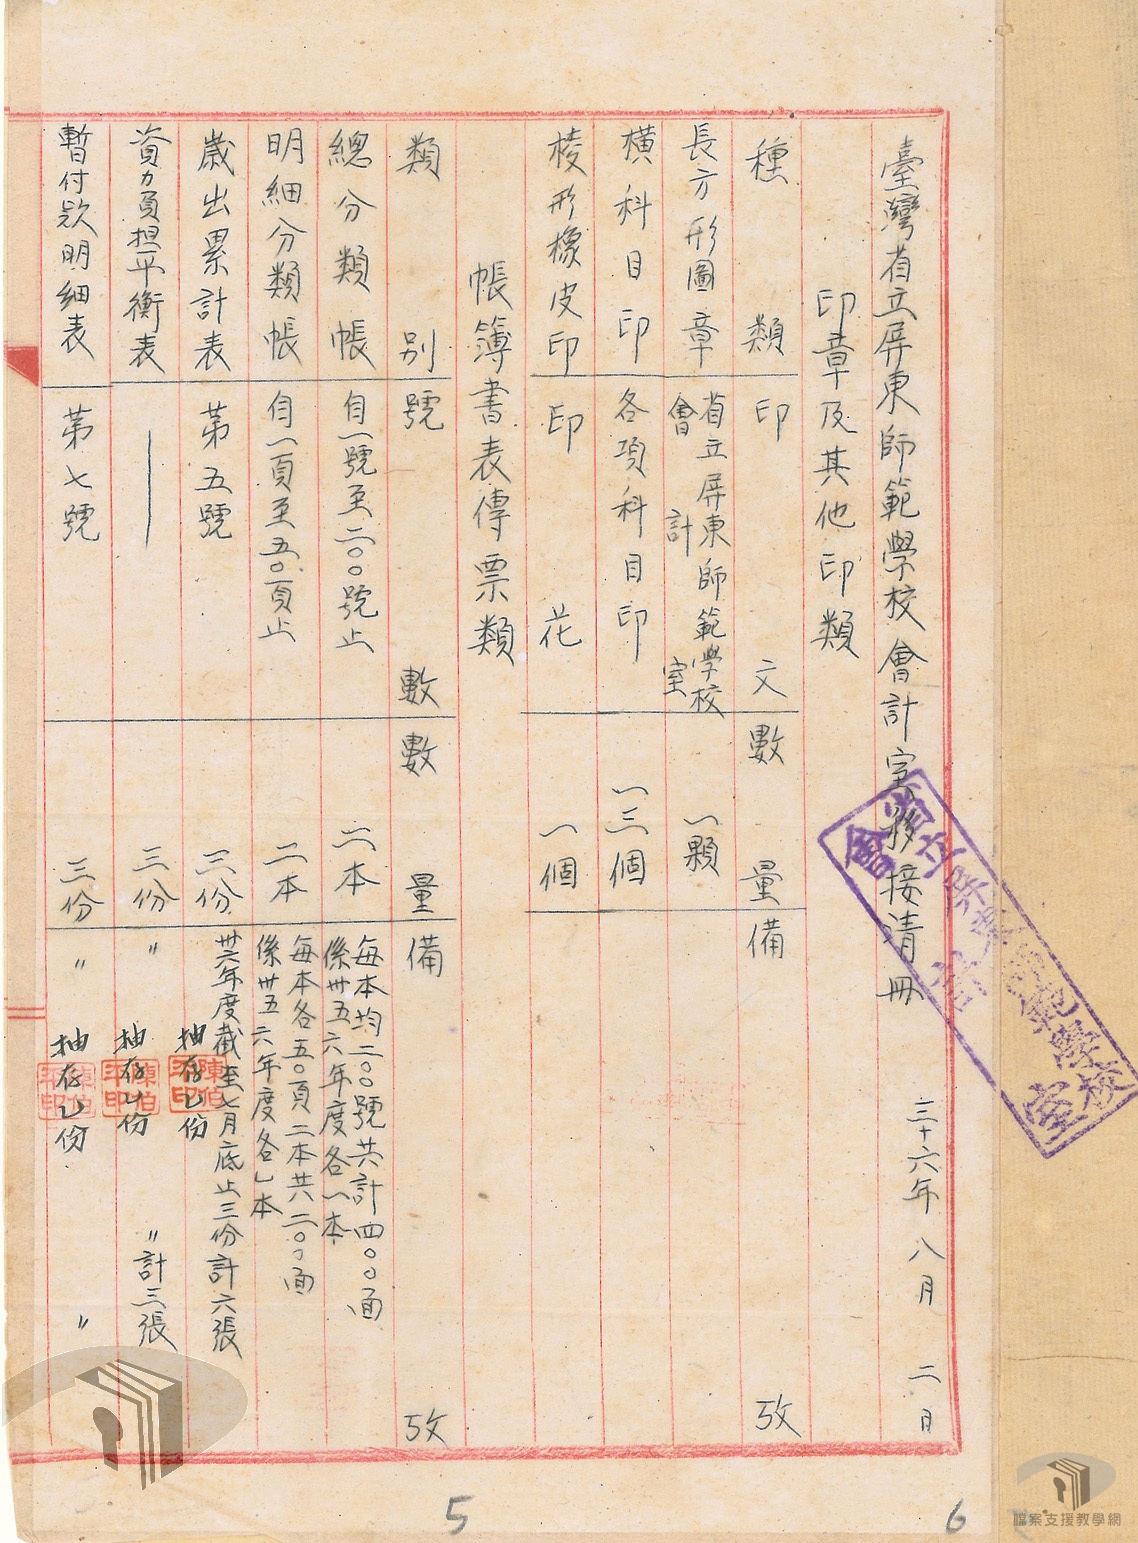 臺灣省立屏東師範學校會計室移接清冊 三十六年八月二日
印章及其他印類
種類 印文 數量 備攷
長方形圖章 省立屏東師範學校會計室 一顆
橫科目印 各項科目印 一三個
棱形橡皮印 印花 一個
帳簿書表傳票類
類別 號數 數量 備攷
總分類帳 自一號至二〇〇號止 二本 每本均二〇〇號共計四〇〇面
係卅五六年度各一本
明細分類帳 自一頁至五〇頁止 二本 每本各五〇頁二本共二〇〇面
係卅五六年度各乙本
歲出累計表 第五號 三份 卅六年度截至七月底止三份計六張
抽存乙份
資力負担平衡表 —— 三份 〃 〃計三張
抽存乙份
暫付款明細表 第七號 三份 〃 〃
抽存乙份
省立屏東師範學校
會計室
陳伯
印
陳伯
印
陳伯
印
5
6
檔案支援教學網